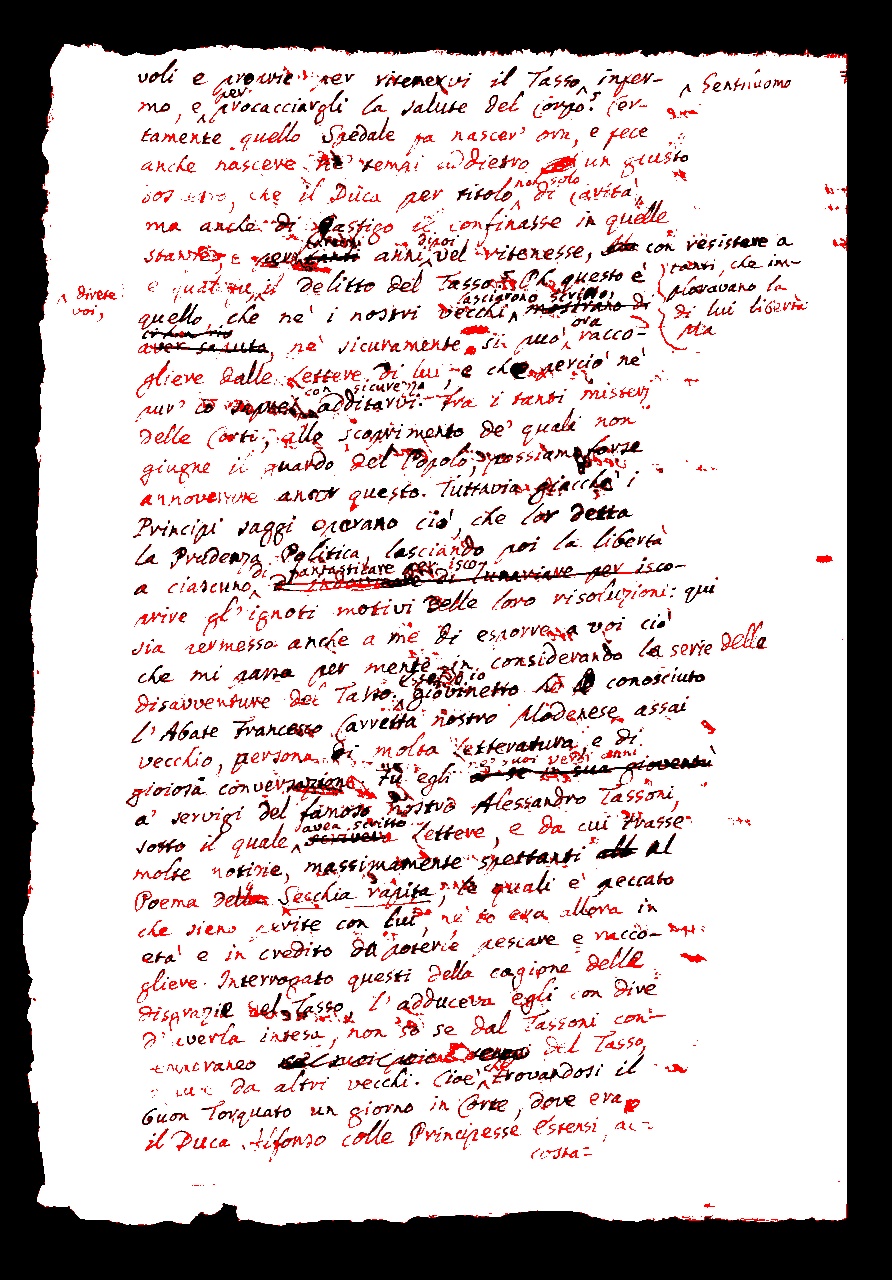 voli e proprie per ritenervi il Tasso infer-
^ Gentiluomo
mo, e per procacciargli la salute del Corpo. Cer-
tamente quello Spedale fa nascer' ora, e fece
anche nascere ne' tempi addietro un giusto
che il Duca per titolo non solo di Carità,
ma anche di gastigo il confinasse in quelle
stanze, e per tanti anni vel ritenesse, con resistere a
tanti, che im-
ploravano la
di lui libertà
Ma
^ direte
voi,
il delitto del Tasso? Oh questo è
quello che ne' i nostri vecchi lasciarono scritto, mostrano di
aver saputo, ne' sicuramente si può ora racco-
gliere dalle Lettere di lui, e che perciò ne'
pur' io saprei con sicurezza additarvi. Fra i tanti misteri
delle Corti, allo scoprimento de' quali non
giugne il guardo del Popolo, possiam forse
annoverare ancor questo. Tuttavia giacchè i
Principi saggi operano ciò, che lor detta
la Prudenza Politica, lasciando poi la libertà
a ciascuno di fantasticare per isco-
di lunariare per isco-
prire gl' ignoti motivi delle loro risoluzioni: qui
sia permesso anche a me di esporre a voi ciò
che mi passa per mente in considerando la serie delle
disavventure del Tasso. Essendo io giovinetto ho conosciuto
l' Abate Francesco Carretta nostro Modenese assai
vecchio, persona di molta Letteratura, e di
gioiosa conversazione. Fu egli ne' suoi verdi anni
in sua gioventù
a' servigi del famoso nostro Alessandro Tassoni,
sotto il quale avea scritto Lettere, e da cui trasse
molte notizie, massimamente spettanti al
Poema della Secchia rapita, le quali è peccato
che sieno perite con lui, ne' io era allora in
età e in credito da poterle pescare e racco-
gliere. Interrogato questi della cagione delle
disgrazie del Tasso, l' adduceva egli con dire
d' averla intesa, non so se dal Tassoni con-
temporaneo del Tasso,
da altri vecchi. Cioè che trovandosi il
buon Torquato un giorno in Corte, dove era
il Duca Alfonso colle Principesse Estensi, ac-
costa=